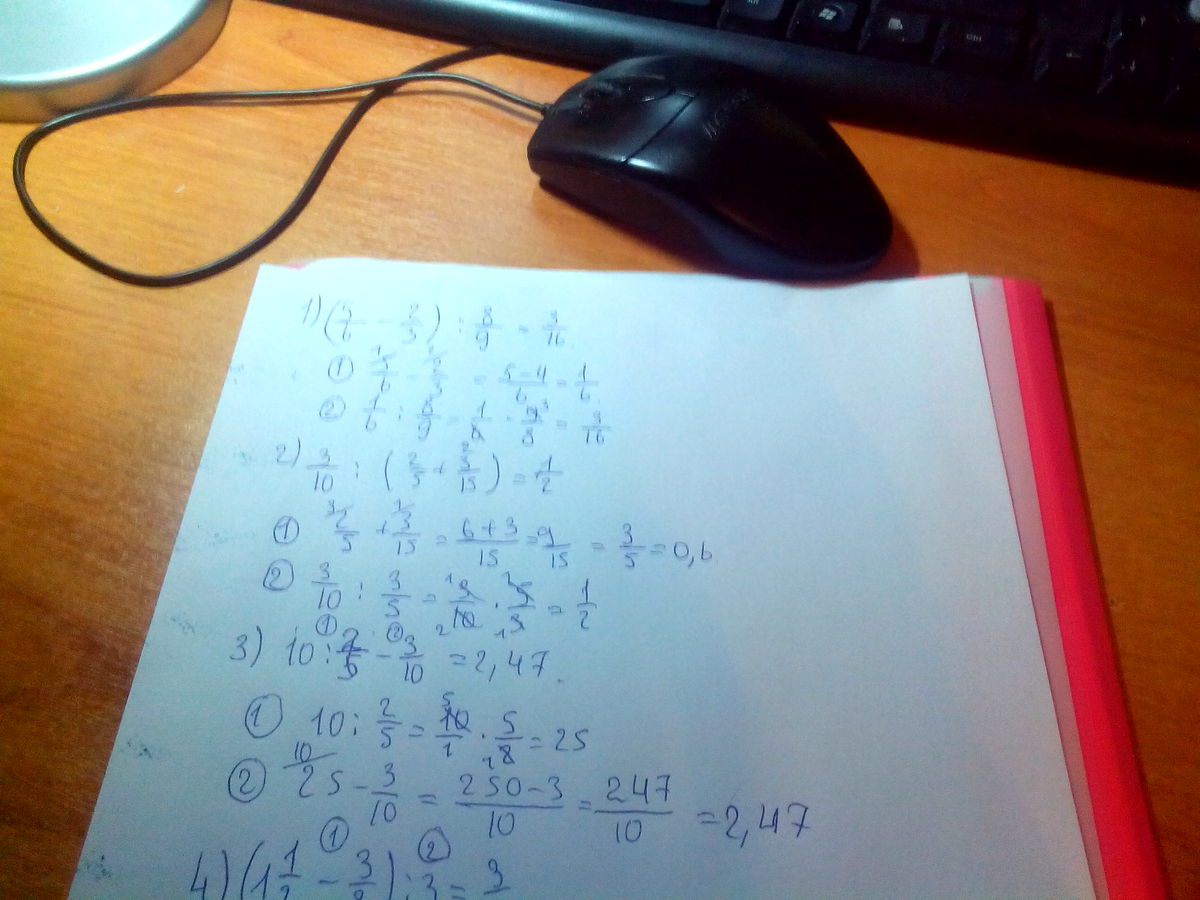 1) (5/6 - 2/3) : 8/9 = 3/16
① 5/6 - 2/3 = 5-4/6 = 1/6
② 1/6 : 8/9 = 1/6 · 9/8 = 3/16
2) 3/10 : (2/5 + 3/15) = 1/2
① 2/5 + 3/15 = 6+3/15 = 9/15 = 3/5 = 0,6
② 3/10 : 3/5 = 3/10 · 5/3 = 1/2
3) 10 : 2/5 - 3/10 = 2,47.
① 10 : 2/5 = 10/1 · 5/2 = 25
② 25 - 3/10 = 250-3/10 = 247/10 = 2,47
4) (1 1/2 - 3/8) : 3 = 3